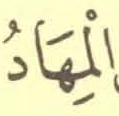 الْمِهَادُ